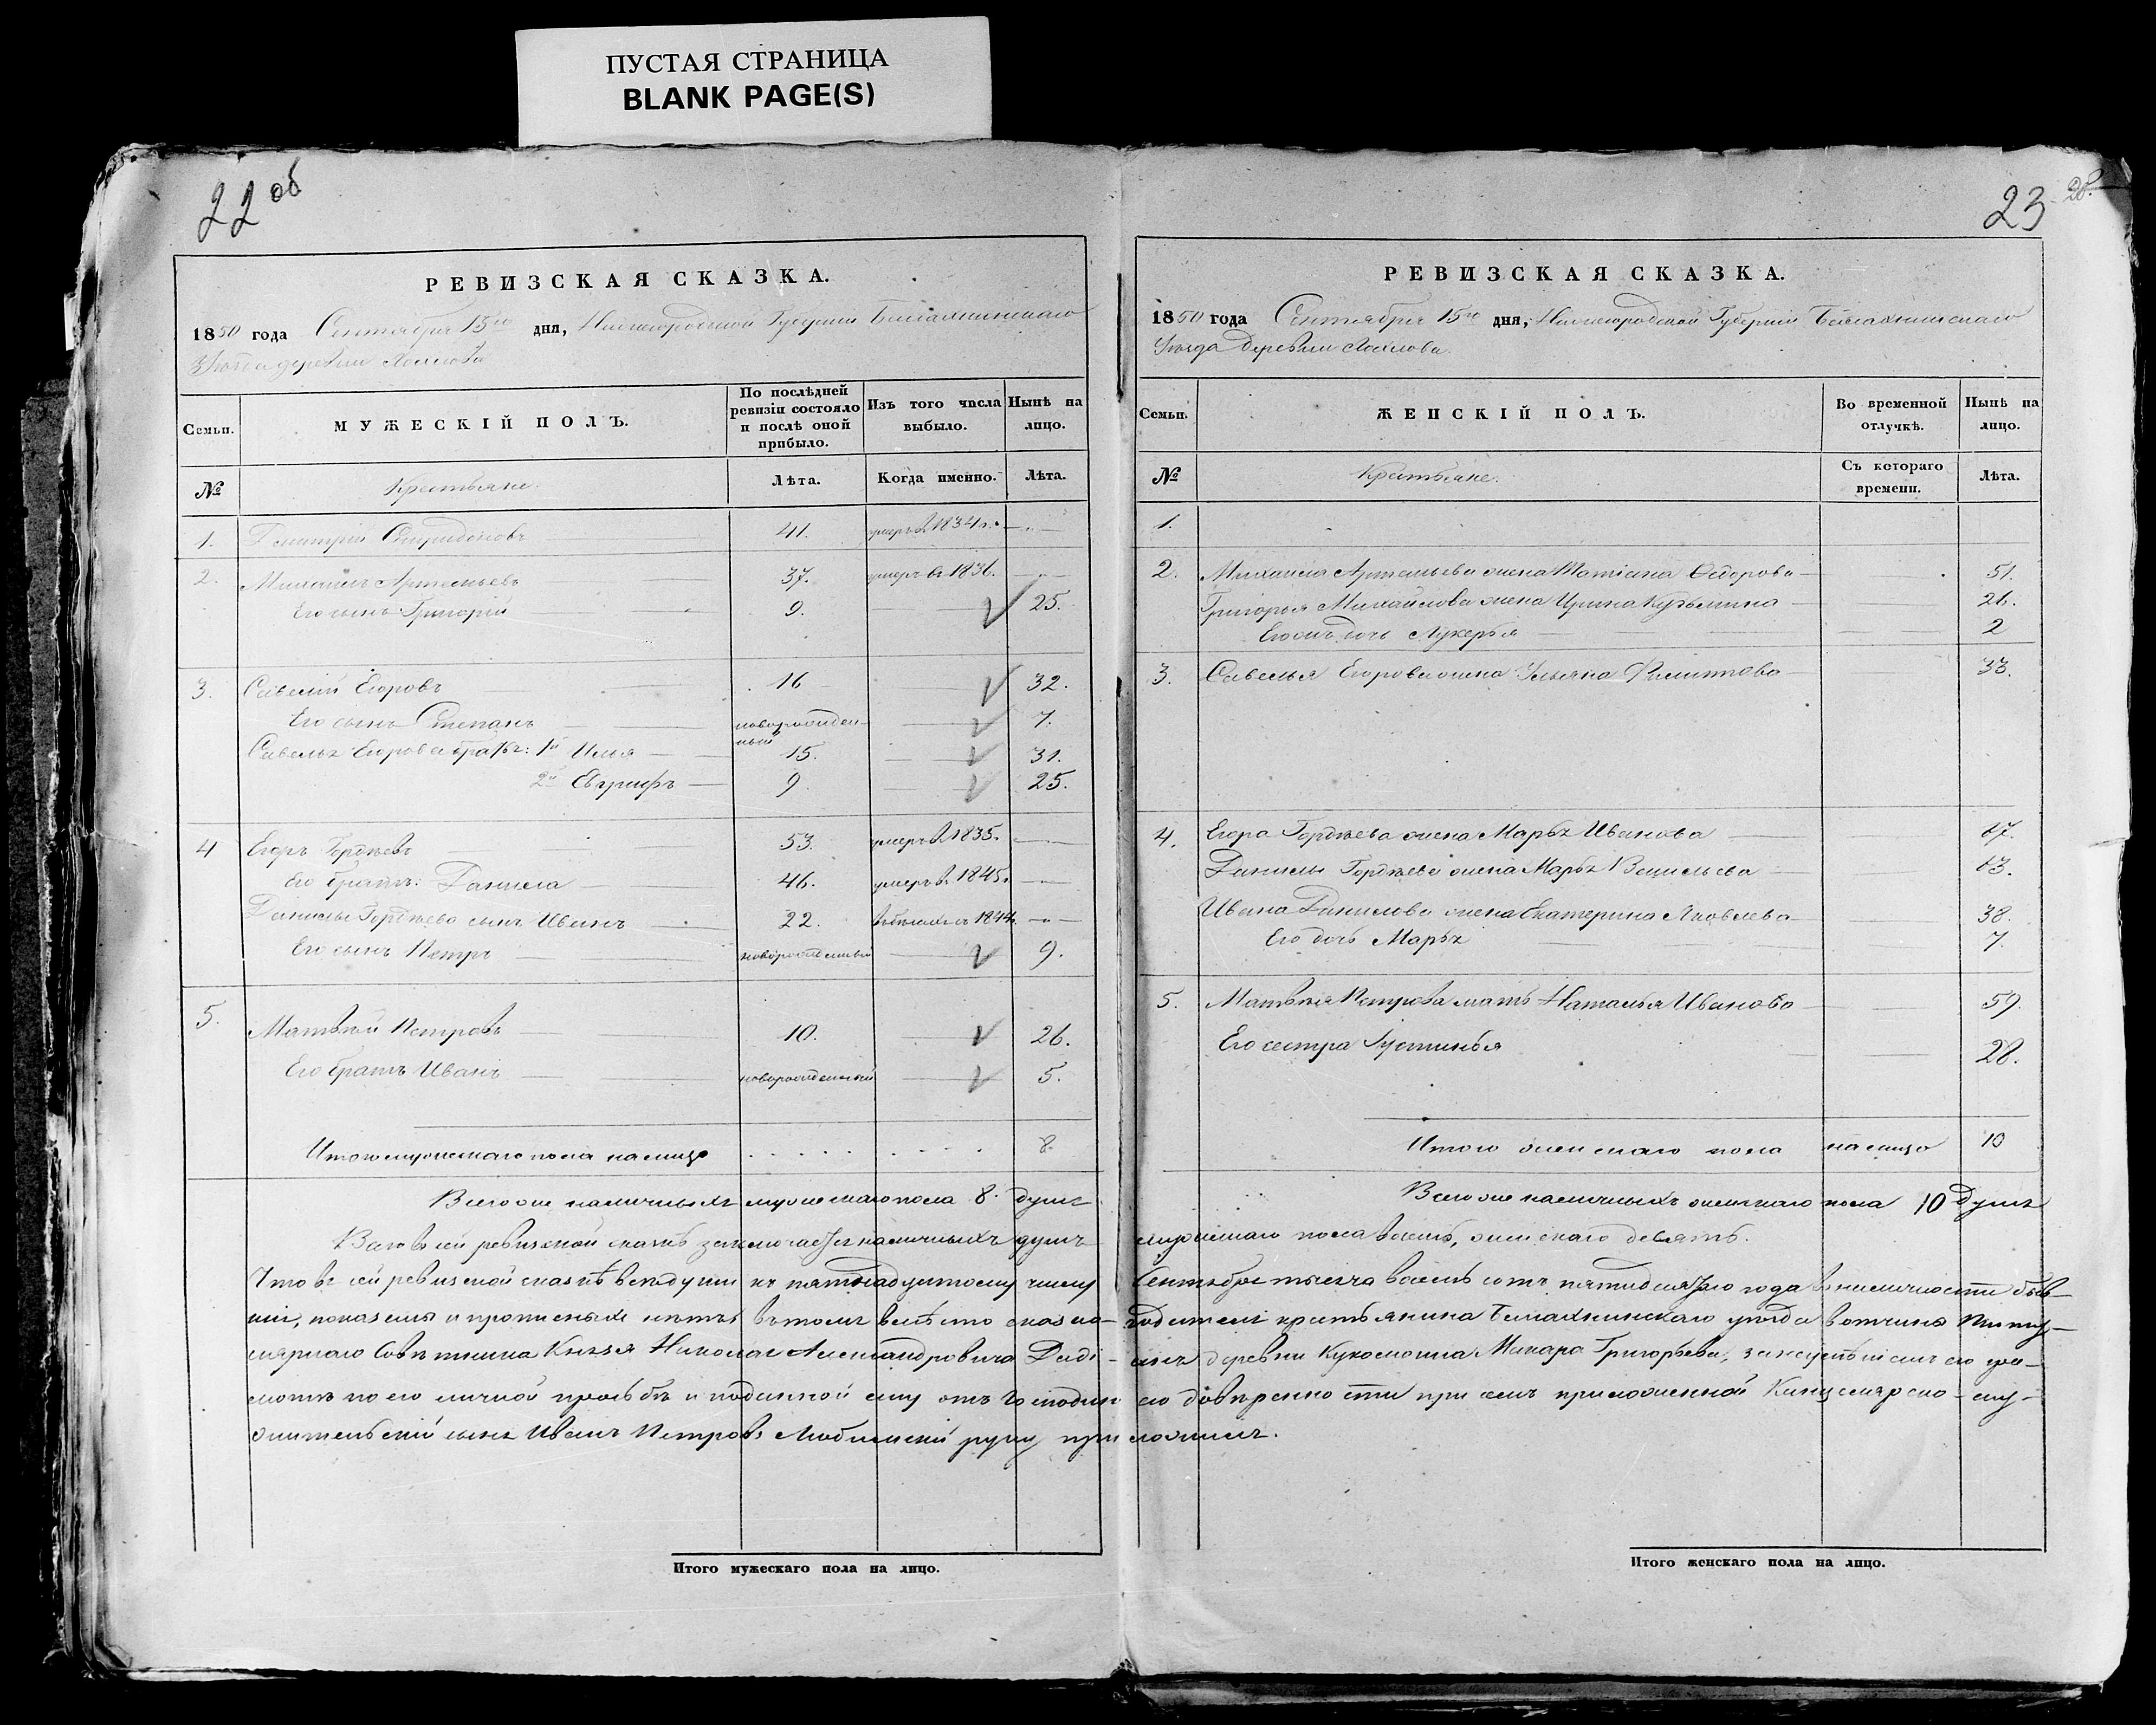 ПУСТАЯ СТРАНИЦА
BLANK PAGE(S)
22 об
РЕВИЗСКАЯ СКАЗКА.
1850 года Сентября 15го дня, Нижегородской Губернiи Балахнинскаго
Уѣзда деревни
Семьи.
МУЖЕСКІЙ ПОЛЪ.
По послѣдней ревизіи состояло и послѣ оной прибыло.
Изъ того числа выбыло.
Нынѣ на лицо.
№
Крестьяне.
Лѣта.
Когда именно.
Лѣта.
1. Дмитрiй Спиридоновъ 41. умеръ въ 1834.
2. Михайлъ Артемьевъ 37. умеръ въ 1836.
Его сынъ Григорiй 9. 25.
3. Савелiй Егоровъ 16 32.
Его сынъ Степанъ новорожденный 7.
Савелья Егорова братья: 1й Илья 15. 31.
2й Евграфъ 9. 25.
4 Егоръ Гордѣевъ 53. умеръ въ 1835.
Его братъ: Данила 46. умеръ въ 1845.
Данилы Гордѣева сынъ Иванъ 22. въ бѣгахъ съ 1844.
Его сынъ Петръ новорожденный 9.
5. Матвѣй Петровъ 10. 26.
Его братъ Иванъ новорожденный 5.
Итого мужескаго пола на лицо 8.
Всего же наличныхъ мужескаго пола 8. душъ
Итого мужескаго пола на лицо.
23
РЕВИЗСКАЯ СКАЗКА.
1850 года Сентября 15го дня, Нижегородской Губернiи Балахнинскаго
Уѣзда деревни
Семьи.
ЖЕНСКІЙ ПОЛЪ.
Во временной отлучкѣ.
Нынѣ на лицо.
№
Крестьяне.
Съ котораго времени.
Лѣта.
1.
2. Михайла Артемьева жена Татіана Федорова 51.
Григорья Михайлова жена Ирина Кузьмина 26.
Его дочь Лукерья 2
3. Савелья Егорова жена Ульяна Филипова 33.
4. Егора Гордѣева жена Марья Иванова 67.
Данилы Гордѣева жена Марья Васильева 63.
Ивана Данилова жена Екатерина Яковлева 38.
Его дочь Марья 7.
5. Матвѣя Петрова мать Наталья Иванова 59.
Его сестра Устинья 28.
Итого женскаго пола на лицо 10
Всего же наличныхъ женскаго пола 10 душъ
Всего въ сей ревизской сказкѣ заключается наличныхъ душъ мужескаго пола восемь, женскаго девять.
Что въ сей ревизской сказкѣ всѣ души къ пятнадцатому числу Сентября тысяча восемь сотъ пятидесятаго года въ наличности быв-
шiя, показаны и прописныхъ нѣтъ въ томъ вмѣсто сказко-подателя крестьянина Балахнинскаго уѣзда вотчины Титу-
лярнаго Совѣтника Князя Николая Александровича деревни Макара Григорьева, за неумѣнiемъ его гра-
мотѣ по его личной прозьбѣ и поданной ему отъ Господина его довѣренности при семъ приложенной
сынъ Иванъ Петровъ руку приложилъ.
Итого женскаго пола на лицо.